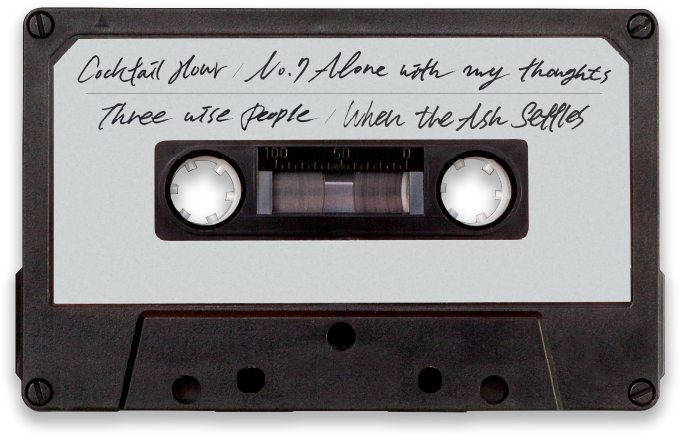 Cocktail Hour / No.7 Alone with my thoughts
Three wise people / When the Ash Settles
100 50 0